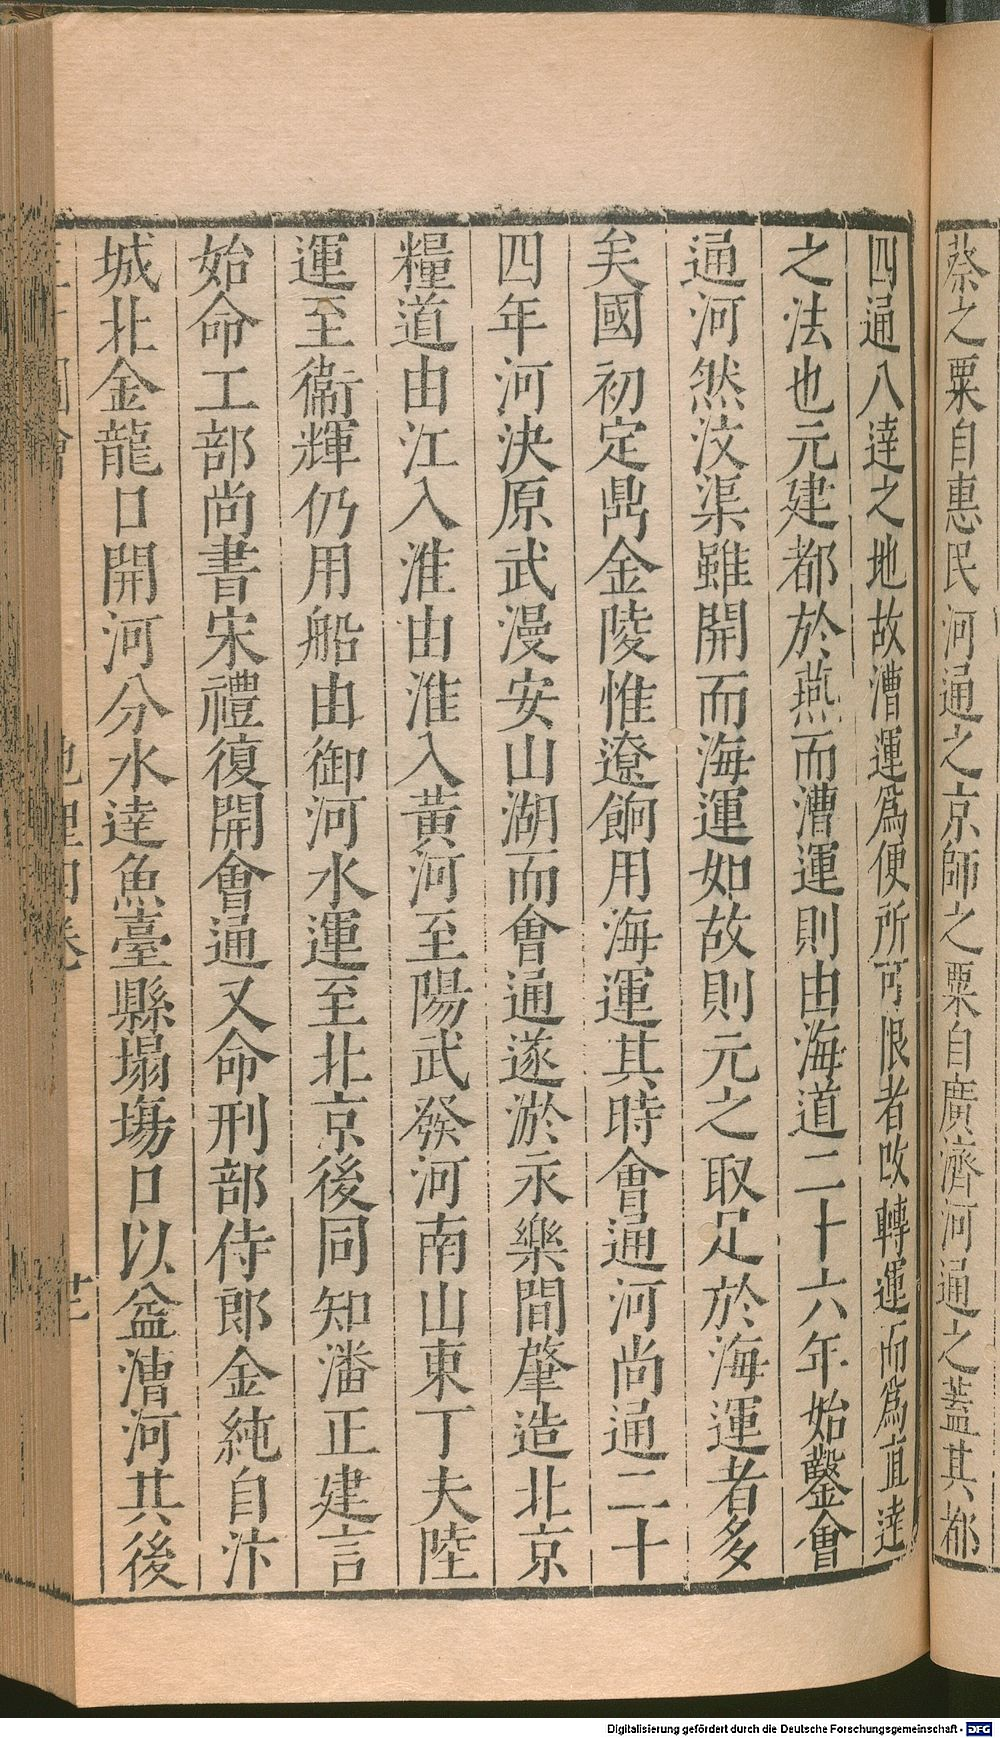 蔡之粟自惠民河通之京師之粟自廣濟河通之蓋其都
四通八達之地故漕運爲便所可恨者改轉運而爲直達
之法也元建都於燕而漕運則由海道二十六年始鑿會
通河然汶渠雖開而海運如故則元之取足於海運者多
矣國初定鼎金陵惟遼餉用海運其時會通河尚通二十
四年河決原武漫安山湖而會通遂淤永樂間肇造北京
糧道由江入淮由淮入黃河至陽武發河南山東丁夫陸
運至衞輝仍用船由御河水運至北京後同知潘正建言
始命工部尚書宋禮復開會通又命刑部侍郎金純自汴
城北金龍口開河分水達魚臺縣塌塲口以益漕河其後
圖會
地理四卷
Digitalisierung gefördert durch die Deutsche Forschungsgemeinschaft - DFG